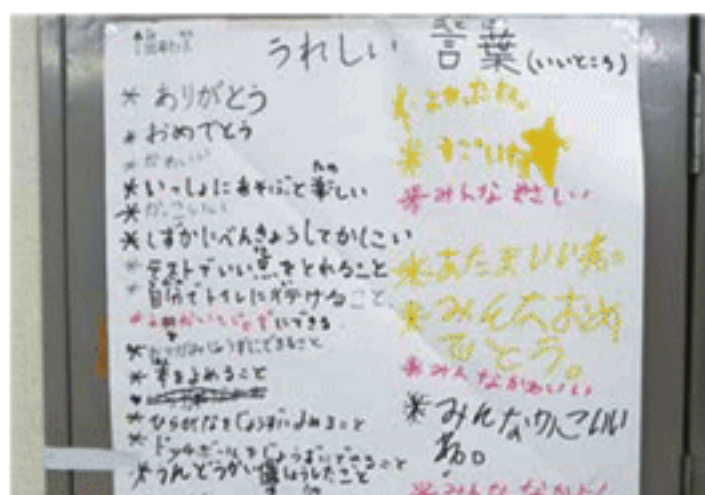 うれしい 言葉 (いいところ)
* ありがとう
* おめでとう
* かわいい
* いっしょにあそぶと楽しい
* かっこいい
* しずかにべんきょうしてかしこい
* テストでいい点をとれること
* 自分でトイレに行けること
にできる
* おりがみじょうずにできること
* 本をよめること
* ひらがなをじょうずによめること
* ドッチボールをじょうずにできること
* うんどうかい優しょうしたこと
* よかったね。
* すごいね
* みんなやさしい
* あたまいいね。
* みんなおめ
でとう。
* みんなかわいい
* みんなかっこいい
ね。
* みんななかよく